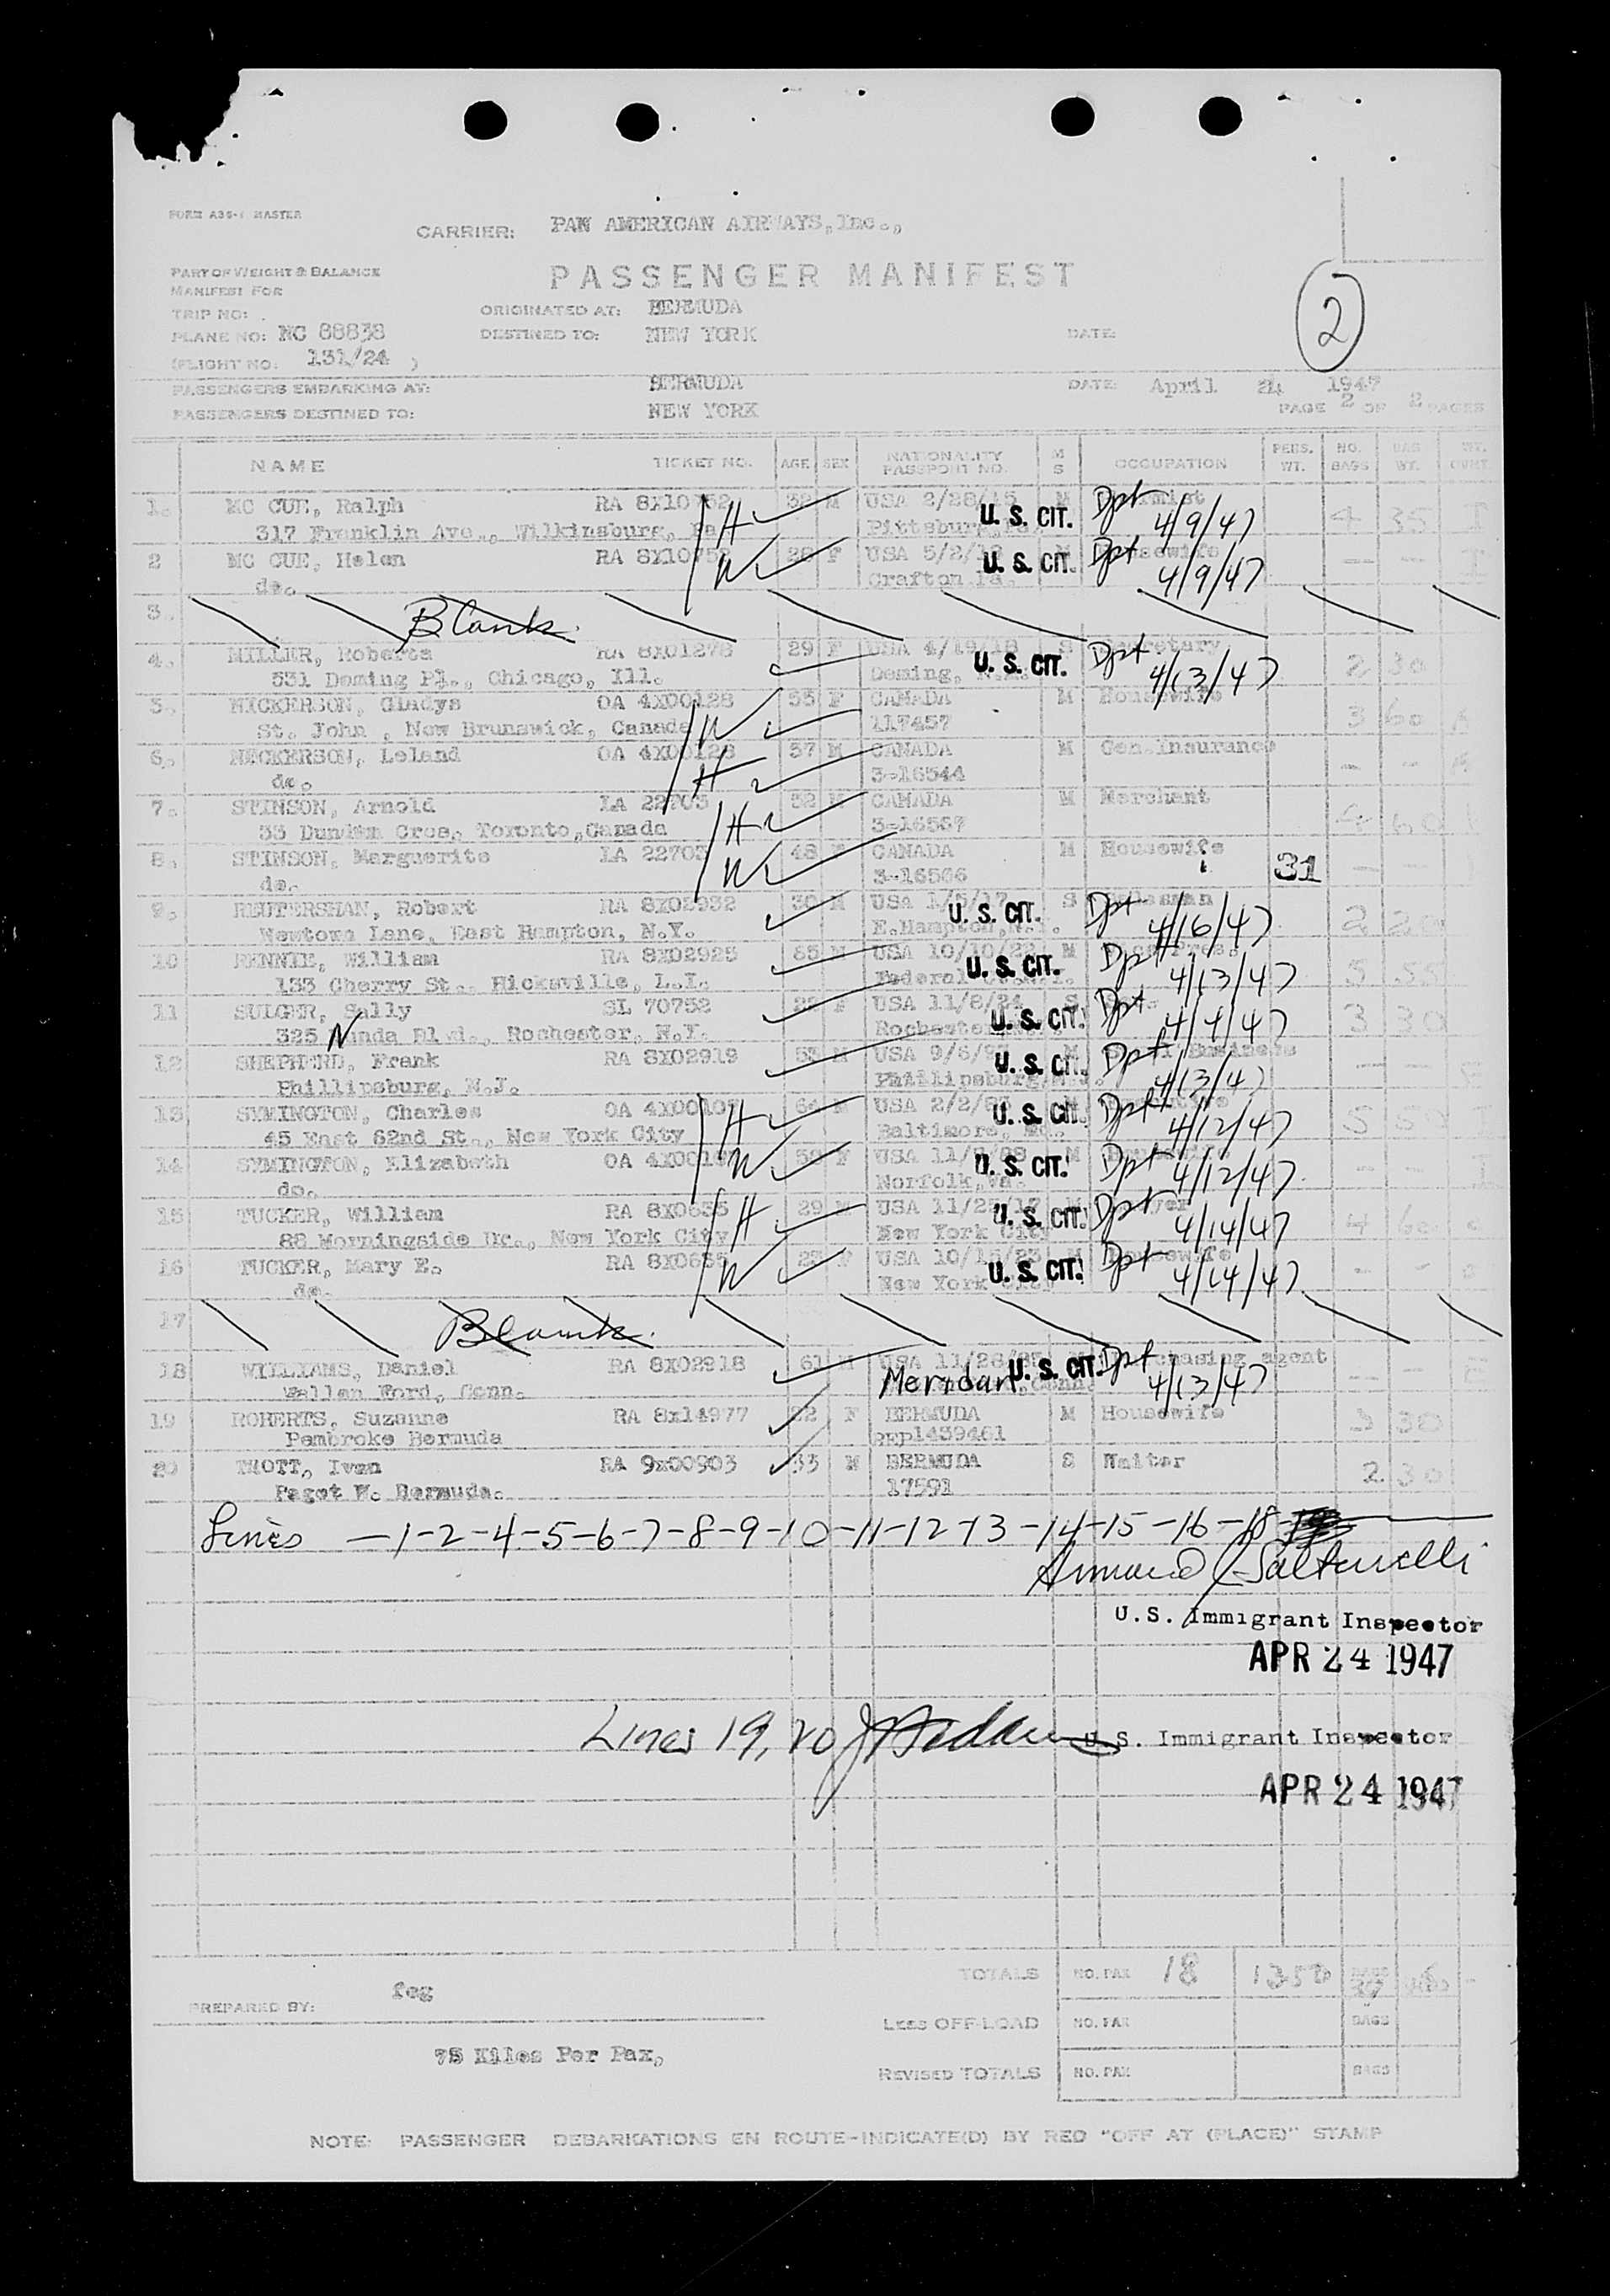 FORM A36-1 MASTER
CARRIER: PAN AMERICAN AIRWAYS, Inc.,
PART OF WEIGHT & BALANCE
MANIFEST FOR
PASSENGER MANIFEST
TRIP NO:
ORIGINATED AT: BERMUDA
2
PLANE NO: NC 88838
DESTINED TO: NEW YORK
DATE:
(FLIGHT NO. 131/24 )
PASSENGERS EMBARKING AT: BERMUDA DATE: April 24 1947
PASSENGERS DESTINED TO: NEW YORK PAGE 2 OF 2 PAGES
NAME TICKET NO. AGE SEX NATIONALITY PASSPORT NO. M S OCCUPATION PERS. WT. NO. BAGS BAG WT.
1. MC CUE, Ralph RA 8X10752 32 M USA 2/28/15 M Dpt
317 Franklin Ave., Wilkinsburg, Pa H U. S. CIT. 4/9/47 4 35 I
2 MC CUE, Helen RA 8X10752 28 F USA 5/2/ Dpt Housewife
do. W Crafton Pa. U. S. CIT. 4/9/47 — — I
3. Blank
4. MILLER, Roberta RA 8X01278 29 F USA 4/19/18 S Dpt Secretary
531 Deming Pl., Chicago, Ill. Deming, U. S. CIT. 4/13/47 2 30
5. NICKERSON, Gladys OA 4X00128 55 F CANADA M Housewife
St. John , New Brunswick, Canada W 117457 3 60
6. NICKERSON, Leland OA 4X00128 57 M CANADA M Gen.Insurance
do. H 3-16544 - -
7. STINSON, Arnold LA 22703 52 M CANADA M Merchant
33 Cres. Toronto,Canada H 3-16567 4 60
8. STINSON, Marguerite LA 22703 48 F CANADA M Housewife
do. W 3-16566 31 — —
9. REUTERSHAN, Robert RA 8X02932 30 M USA 1/5/17 S Dpt
Newtown Lane, East Hampton, N.Y. E.Hampton,N.Y. U. S. CIT. 4/16/47 2 20
10 RENNIE, William RA 8X02925 M USA 10/10/ M Dpt Pres.
133 Cherry St., Hicksville, L.I. Federal U. S. CIT. 4/13/47 5 55
11 SULGER, Sally SL 70752 22 F USA 11/8/24 S Dpt
325 Nunda Blvd., Rochester, N.Y. Rochester U. S. CIT. 4/4/47 3 30
12 SHEPHERD, Frank RA 8X02919 M USA 9/6/ M Dpt Business
Phillipsburg, N.J. Phillipsburg N.J. U. S. CIT. 4/13/47 — —
13 SYMINGTON, Charles OA 4X00107 64 M USA 2/2/83 M Dpt
45 East 62nd St., New York City H Baltimore, Md. U. S. CIT. 4/12/47 5
14 SYMINGTON, Elizabeth OA 4X00107 F USA 11/ M Dpt
do. W Norfolk,Va. U. S. CIT. 4/12/47 - -
15 TUCKER, William RA 8X0635 29 M USA 11/ /17 M Dpt
88 Morningside Dr., New York City H New York City U. S. CIT. 4/14/47 4 60
16 TUCKER, Mary E. RA 8X0635 23 F USA 10/15/23 M Dpt Housewife
do. W New York City U. S. CIT. 4/14/47 - -
17 Blank
18 WILLIAMS, Daniel RA 8X02918 61 M USA 11/26/85 Dpt Purchasing agent
Wallen Ford, Conn. Meridan Conn. U. S. CIT. 4/13/47 — —
19 ROBERTS, Suzanne RA 8x14977 22 F BERMUDA M Housewife
Pembroke Bermuda 1439461 3 30
20 TROTT, Ivan RA 9x00903 33 M BERMUDA S Waiter
Paget W. Bermuda. 17591 2 30
Lines —1-2-4-5-6-7-8-9-10-11-12-13-14-15-16-18
U.S. Immigrant Inspector
APR 24 1947
Lines 19, 20
U.S. Immigrant Inspector
APR 24 1947
TOTALS NO. PAX 18 1350 BAGS 39
PREPARED BY: feg
LESS OFF-LOAD NO. PAX BAGS
75 Kilos Per Pax,
REVISED TOTALS NO. PAX BAGS
NOTE: PASSENGER DEBARKATIONS EN ROUTE-INDICATE(D) BY RED "OFF AT (PLACE)" STAMP